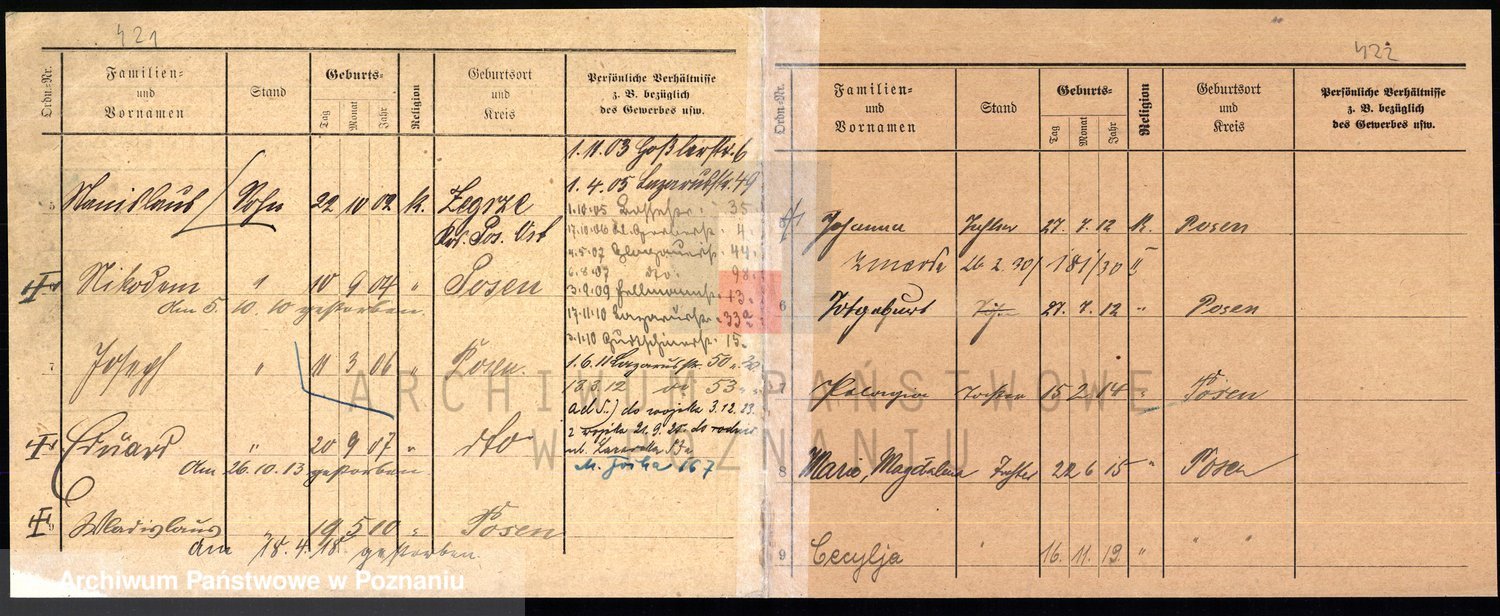 421
Ordn.-Nr.
Familien-
und
Vornamen
Stand
Geburts-
Tag
Monat
Jahr
Religion
Geburtsort
und
Kreis
Persönliche Verhältnisse
z. B. bezüglich
des Gewerbes usw.
1.11.03 Goßlerstr. 6
1.4.05 Lazarusstr. 49
5 Stanislaus Sohn 22 10 02 K. Zegrze
Krs. Pos. Ost
1.10.05 35
17.10.06 Kl. Gerberstr. 4.
4.5.07 Glogauerstr. 44
6.8.07 dto. 98.
Nikodem " 10 9 04 " Posen
am 5. 10. 10 gestorben.
3.9.09 43.
17.11.10 Lazarusstr. 33a
15.
7 Joseph " 11 3 06 " Posen
1.6.11 Lazarusstr. 50
13.3.12 do 53
ad 5.) do wojska 3.12.23.
z wojska 21.9.25 do
Eduard " 20 9 07 " dto
am 26. 10. 13 gestorben.
167
9 Wladislaus " 19 5 10 " Posen
am 18. 4. 18 gestorben.
422
Ordn.-Nr.
Familien-
und
Vornamen
Stand
Geburts-
Tag
Monat
Jahr
Religion
Geburtsort
und
Kreis
Persönliche Verhältnisse
z. B. bezüglich
des Gewerbes usw.
Johanna Tochter 27. 7. 12 K. Posen
zmarła 26. 2. 30/ 181/30 II
6 Totgeburt 27. 7. 12 " Posen
7 Pelagia Tochter 15 2 14 " Posen
8 Marie, Magdalena Tochter 22 6 15 " Posen
9 Cecylja " 16. 11. 19. " " "
ARCHIWUM PAŃSTWOWE
W POZNANIU
Archiwum Państwowe w Poznaniu